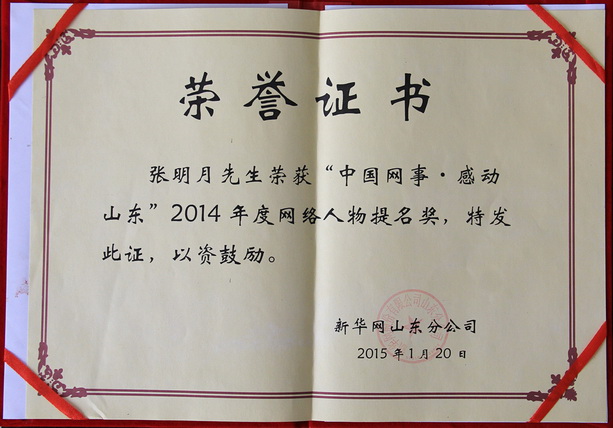 荣誉证书
张明月先生荣获“中国网事·感动
山东”2014年度网络人物提名奖，特发
此证，以资鼓励。
新华网山东分公司
2015年1月20日